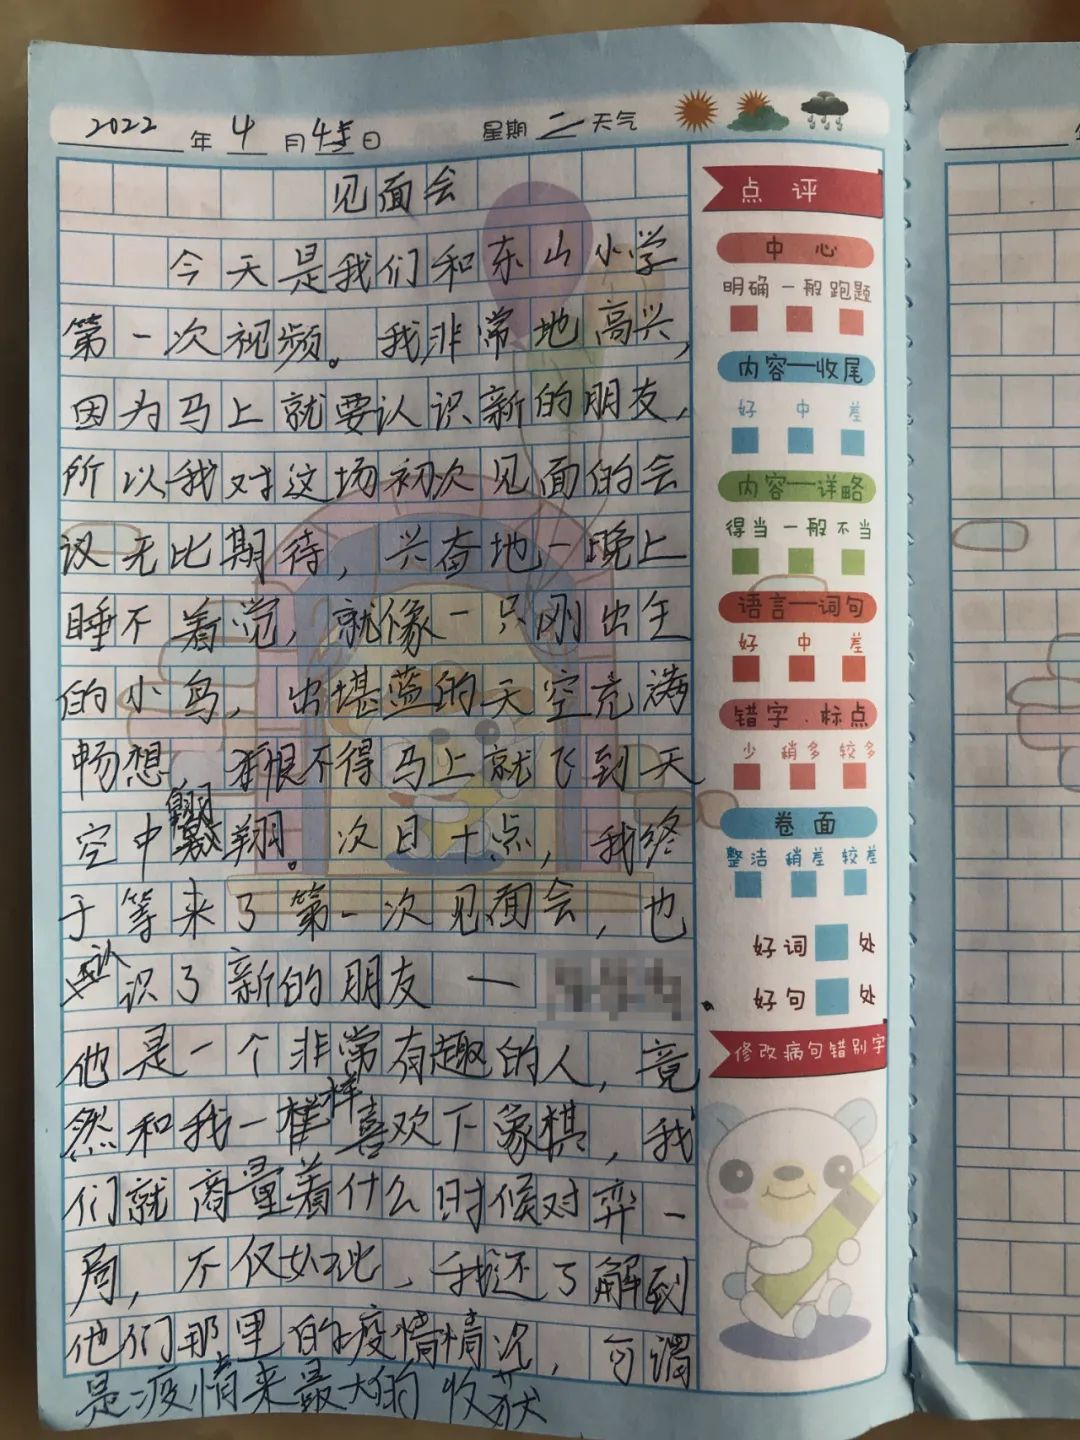 2022年4月4日 星期二 天气
见面会
今天是我们和东山小学
第一次视频。我非常地高兴,
因为马上就要认识新的朋友,
所以我对这场初次见面的会
议无比期待,兴奋地一晚上
睡不着觉,就像一只刚出生
的小鸟,出堪蓝的天空充满
畅想,恨不得马上就飞到天
空中翱翔。次日十点,我终
于等来了第一次见面会,也
认识了新的朋友一
他是一个非常有趣的人,竟
然和我一样喜欢下象棋,我
们就商量着什么时候对弈一
局,不仅如此,我还了解到
他们那里的疫情情况,可谓
是疫情来最大的收获
点评
中心
明确 一般 跑题
内容—收尾
好 中 差
内容—详略
得当 一般 不当
语言—词句
好 中 差
错字.标点
少 稍多 较多
卷面
整洁 稍差 较差
好词 处
好句 处
修改病句错别字